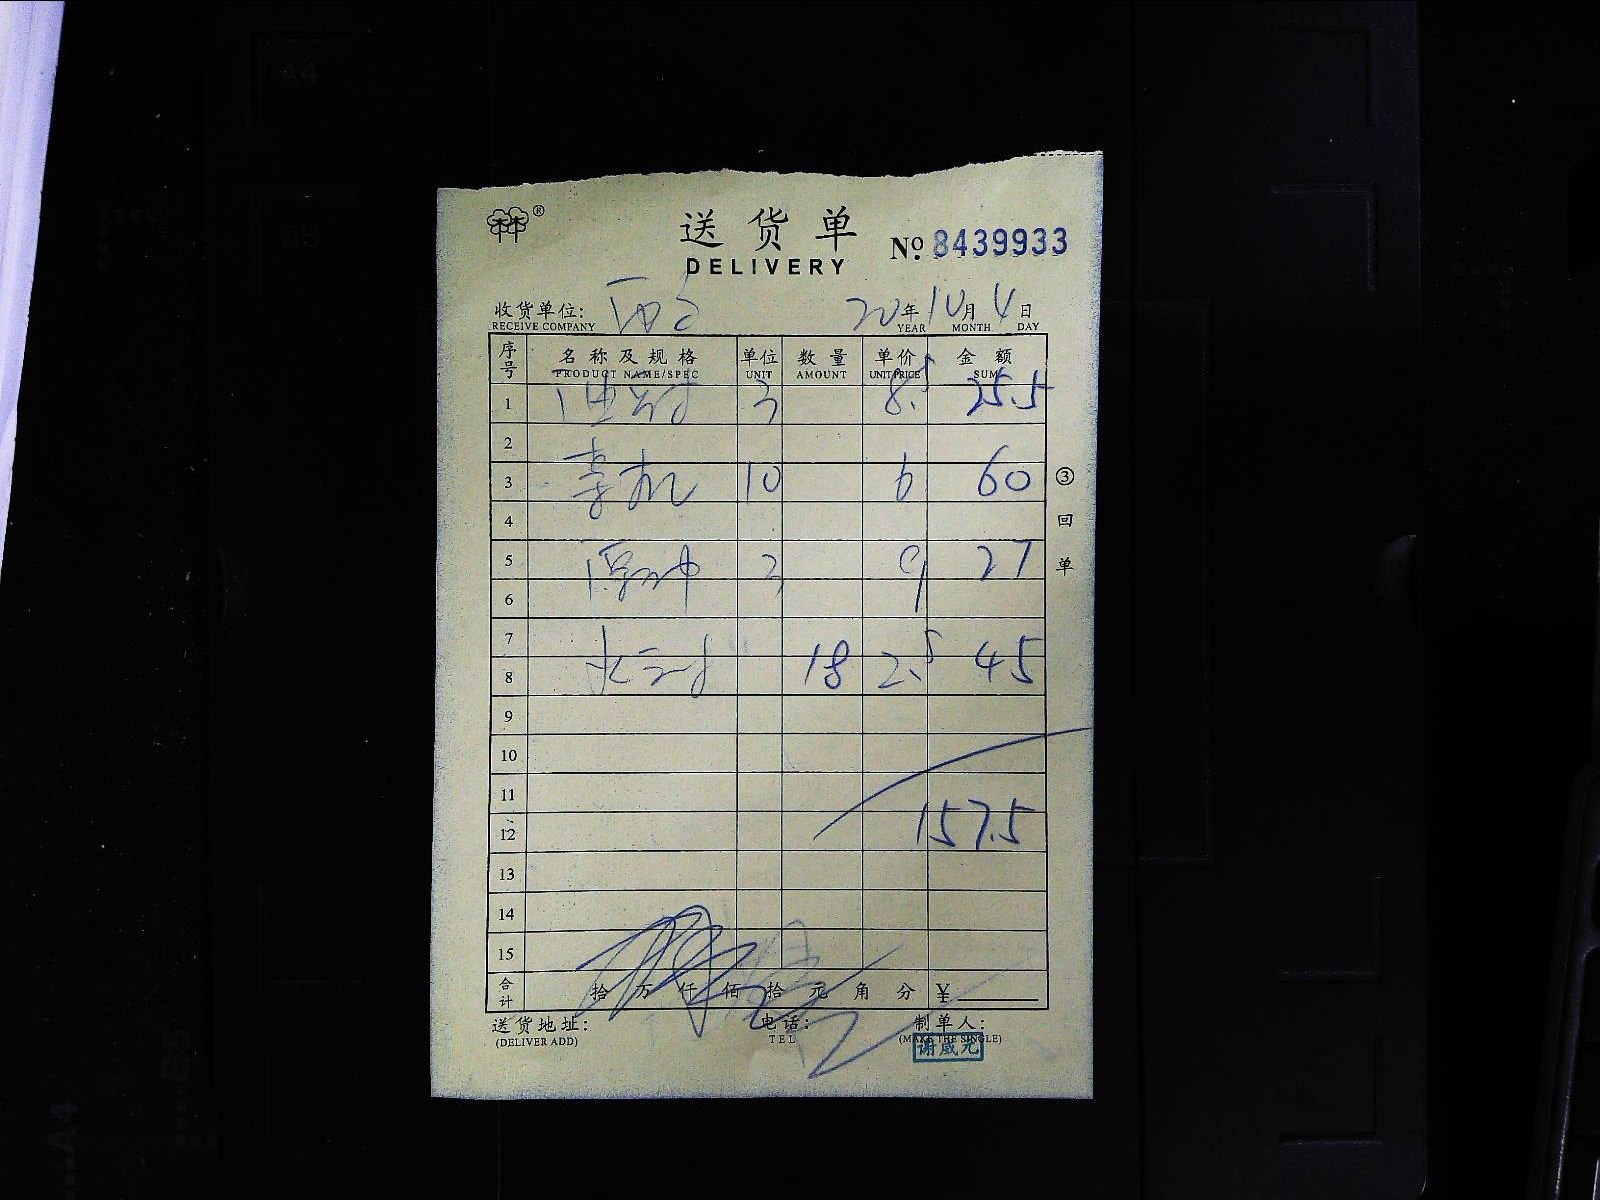 送货单
DELIVERY
№ 8439933
收货单位: 20年10月4日
RECEIVE COMPANY YEAR MONTH DAY
序号 名称及规格 单位 数量 单价 金额
PRODUCT NAME/SPEC UNIT AMOUNT UNIT PRICE SUM
1 3 8.5 25.5
2
3 10 6 60
4
5 3 9 27
6
7
8 18 2.5 45
9
10
11
12 157.5
13
14
15
合计 拾 万 仟 佰 拾 元 角 分 ¥
③回单
送货地址: 电话: 制单人:
(DELIVER ADD) TEL (MAKE THE SINGLE)
谢威光
A4
B5
A4